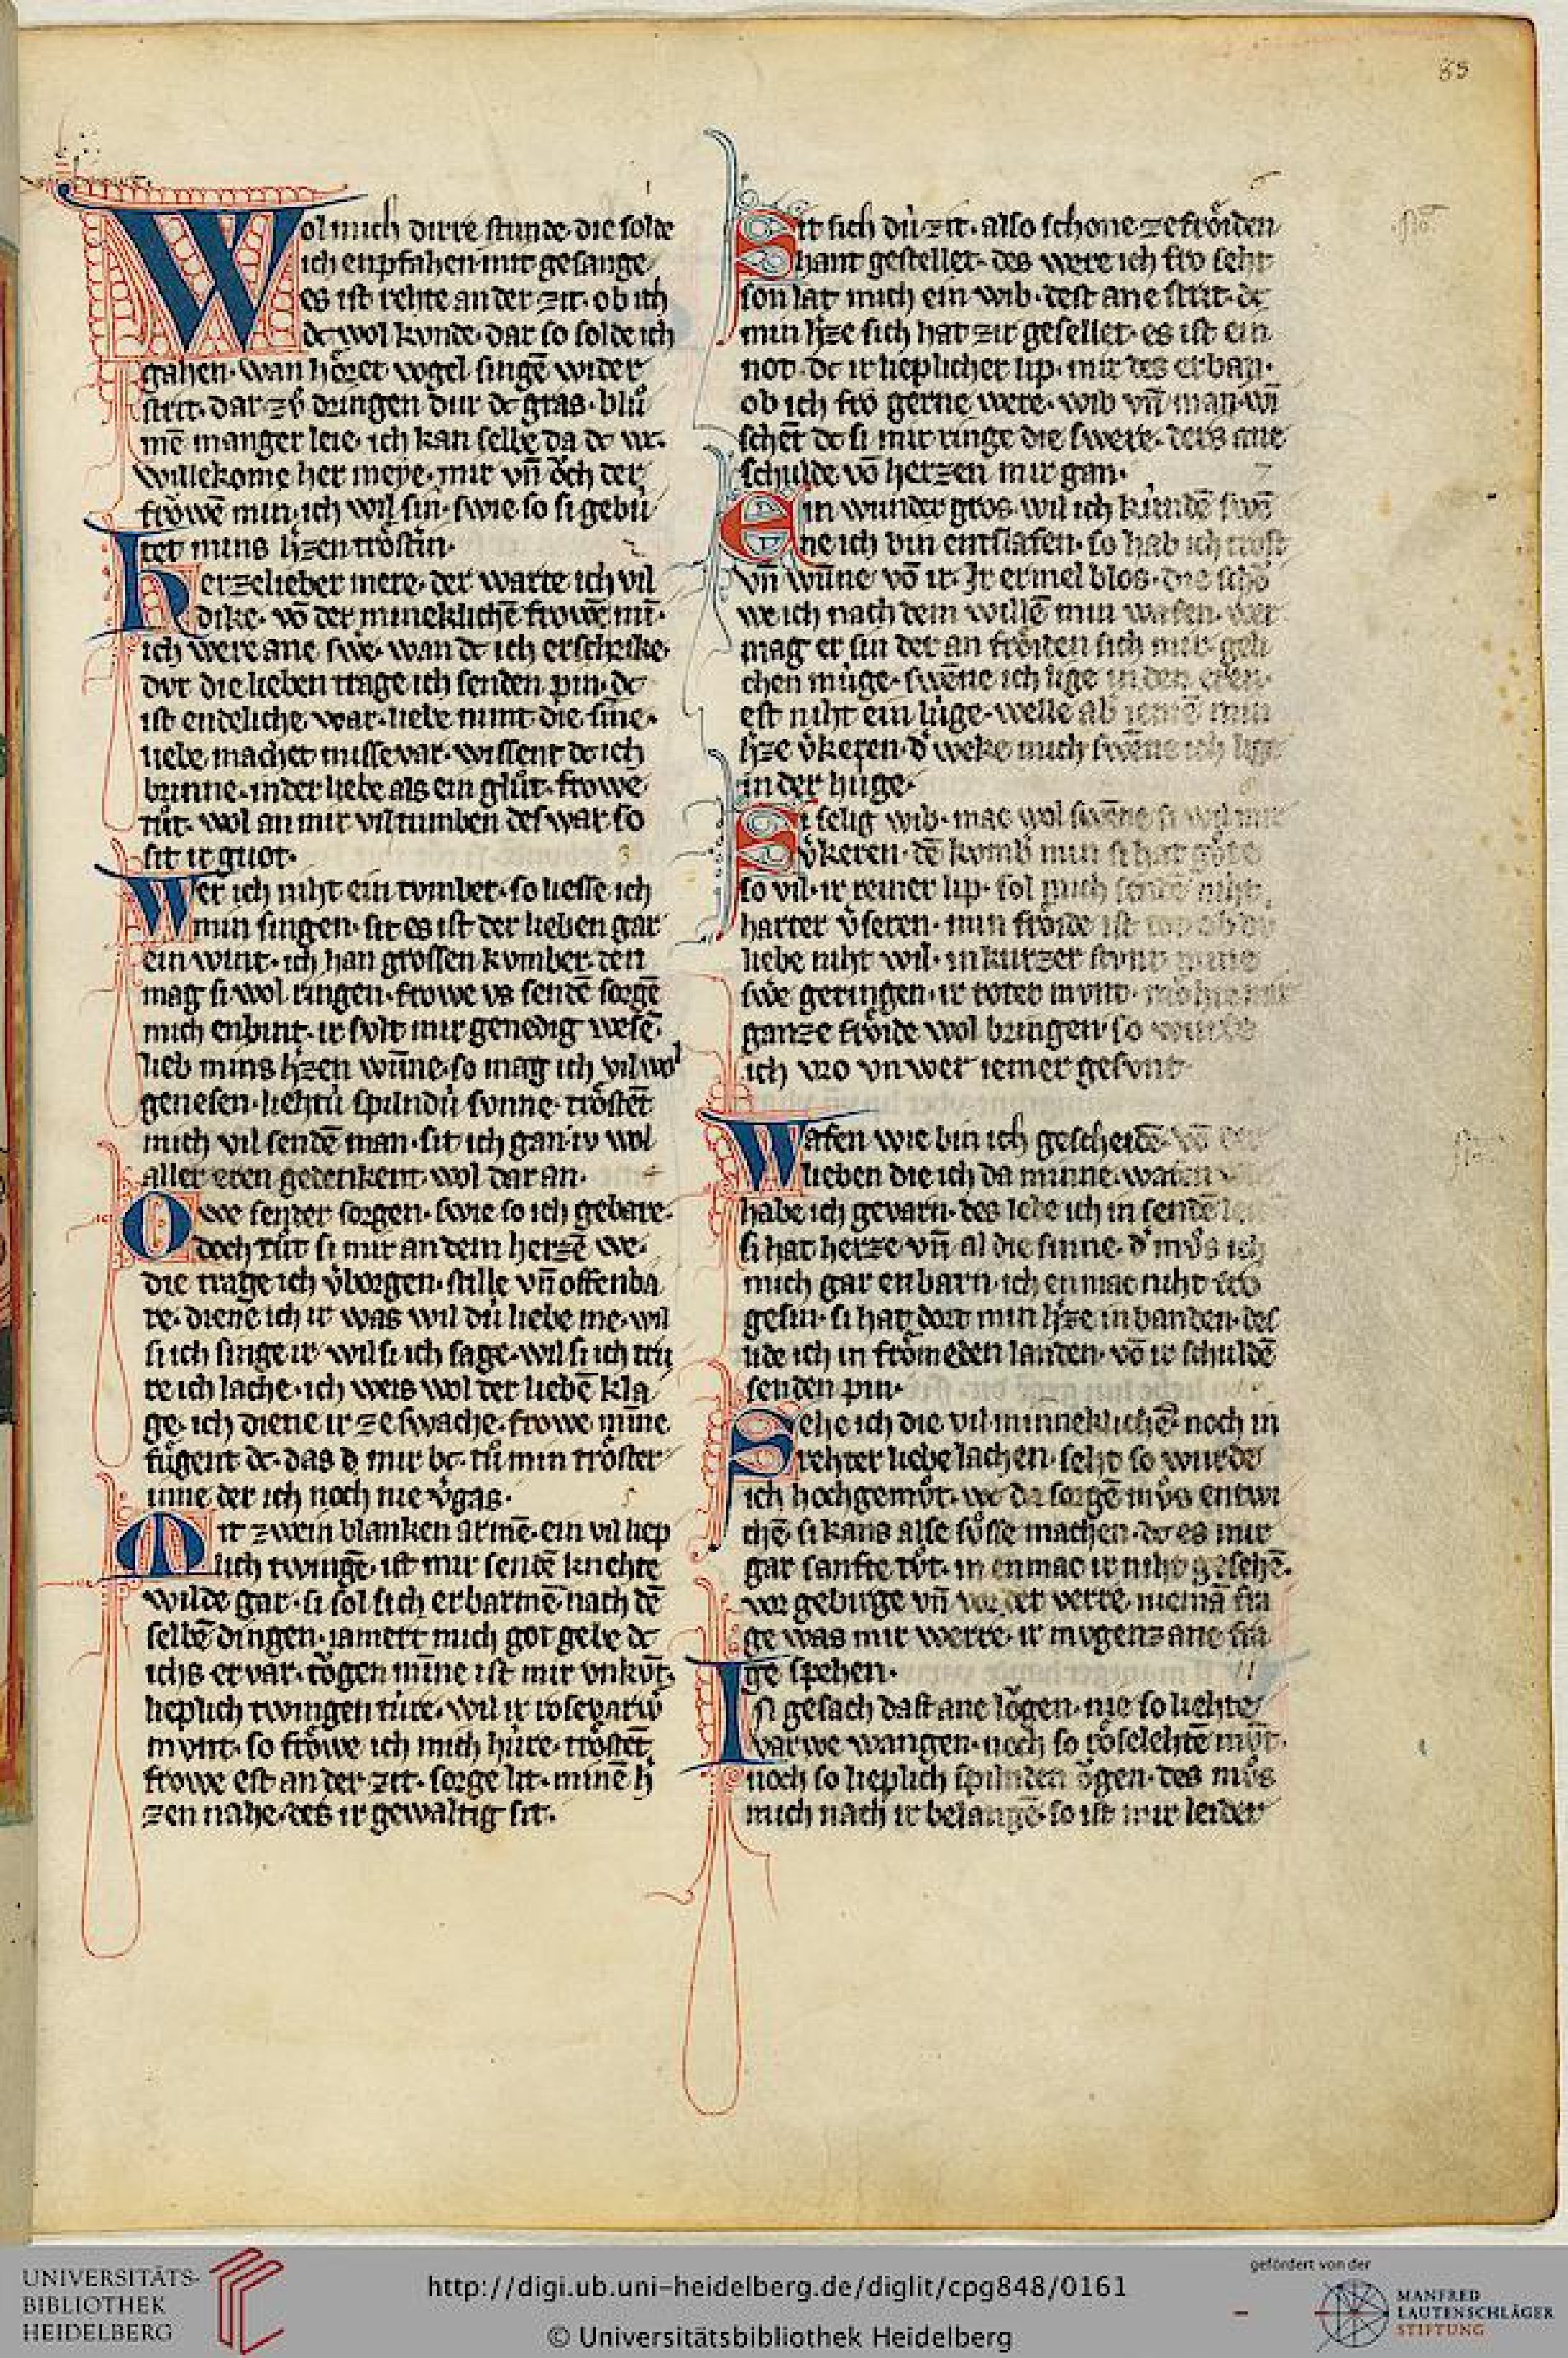 85
Wol mich dirre stunde· die solde
ich enpfahen mit gesange
es ist rehte an der zit· ob ich
dc wol kunde· dar so solde ich
gahen· wan hoͤret vogel singē wider
strit· dar zv̊ dringen dur dc gras· blů
mē manger leie· ich kan selbe da dc
willekome her meye· mir vn̄ oͮch der
froͮwē min· ich wil sin· swie so si gebù
tet mins h̾zen trôstin·
herzelieber mere· der warte ich vil
dike· vō der mineklichē frowē mī·
ich were ane swe· wan dc ich erschrike·
dvr die lieben trage ich senden pin· dc
ist endeliche war· liebe nimt die sine·
liebe machet missevar· wissent dc ich
brinne· in der liebe als ein glůt· frowe
tůt· wol an mir vil tumben des war so
sit ir guot· 3
Wer ich niht ein tvmber· so liesse ich
min singen· sit es ist der lieben gar
ein wint· ich han grossen kvmber· den
mag si wol ringen· frowe vs sendē sorgē
mich enbint· ir svlt mir genedig wesē
lieb mins h̾zen wūne· so mag ich vil wol
genesen· liehtù spilndù sunne· trôstēt
mich vil sendē man· sit ich gan iv wol
aller eren gedenkent wol dar an·
Owe sender sorgen· swie so ich gebare·
doch tůt si mir an dem herzē we·
die trage ich v̾borgen· stille vn̄ offenba
re· diene ich ir was wil dù liebe me· wil
si ich singe ir· wil si ich sage· wil si ich trù
re ich lache· ich weis wol der liebē kla
ge· ich diene ir ze swache· frowe mīne
fůgent dc· das d̾ mir bc· tů min trôster
inne der ich noch nie v̾gas· 5
Mit zwein blanken armē· ein vil liep
lich twingē· ist mir sendē knehte
wilde gar· si sol sich erbarmē nach dē
selbē dingen· iamert mich got gebe dc
ichs ervar· toͮgen mīne ist mir vnkvͦt·
lieplich twingen tùre· wil ir rosevarw̾
mvnt· so froͤwe ich mich hùre· trôstet
frowe est an der zit· sorge lit· minē h̾
zen nahe· des ir gewaltig sit·
Sit sich dù zit· also schone ze froͤiden
hant gestellet· des were ich fro seht
son lat mich ein wib· dest ane strit· dc
min h̾ze sich hat zir gesellet· es ist ein
not· dc ir lieplicher lip· mir des erban·
ob ich fro gerne were· wib vn̄ man wī
schēt dc si mir ringe die swere· ders ane
schulde vō herzen mir gan· 7
Ein wunder gros wil ich kùndē swē
ne ich bin entslafen· so hab ich trost
vn̄ wūne vō ir· Ir ermel blos· die schô
we ich nach dem willē min wafen· wer
mag er sin der an froͤiden sich mir geli
chen mùge· swēne ich lige in den eren·
est niht ein lùge· welle ab iemē min
h̾ze v̾keren· d̾ weke mich swēne ich lige
in der hùge·
Si selig wib· mac wol swēne si wil mir
v̾keren· dē kvmb̾ min si hat gv̊te
so vil· ir reiner lip· sol mich sendē niht
harter v̾seren· min froͤide ist ob dù
liebe niht wil· in kurzer stvnt mine
swe geringen· ir roter mvnt·
ganze froͤide wol bringen so wurde
ich vro vn wer iemer gesvnt·
Wafen wie bin ich gescheidē vō der
lieben die ich da minne· wafen
habe ich gevarn· des lebe ich in sendē
si hat herze vn̄ al die sinne· d̾ mvͦs ich
mich gar enbarn· ich enmac niht vro
gesin· si hat dort min h̾ze in banden· des
lide ich in froͤmeden landen· vō ir schuldē
senden pin·
Sehe ich die vil minneklichē noch in
rehter liebe lachen· seht so wurde
ich hochgemvͦt· wc da sorgē mvͦs entwi
chē· si kans alse sůsse machen· dc es mir
gar sanfte tvͦt· in enmac ir niht gesehē·
vor gebirge vn̄ vor der verre· niemā fra
ge was mir werre· ir mvgenz ane fra
ge spehen·
In gesach dast ane loͮgen· nie so liehte
varwe wangen· noch so roͤselehtē mvͦt·
noch so lieplich spilnden oͮgen· des mvͦs
mich nach ir belangē· so ist mir leider
UNIVERSITÄTS-
BIBLIOTHEK
HEIDELBERG
http://digi.ub.uni-heidelberg.de/diglit/cpg848/0161
© Universitätsbibliothek Heidelberg
gefördert von der
MANFRED
LAUTENSCHLÄGER
STIFTUNG